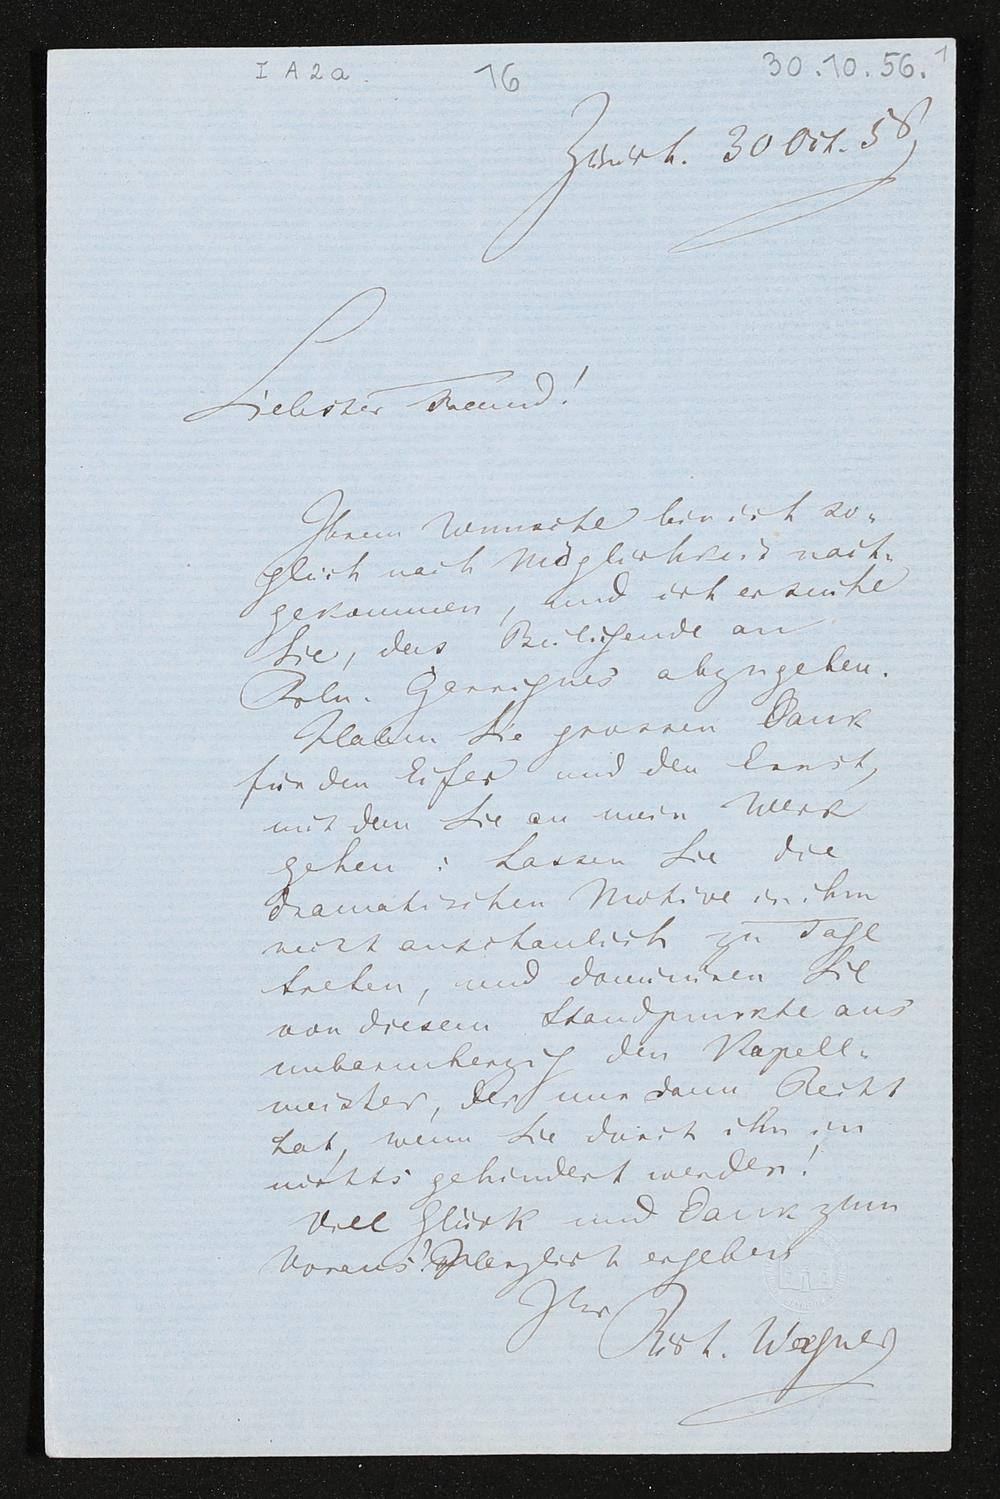 I A 2 a. 16 30.10.56. 1
Zürich. 30 Oct. 56
Liebster Freund!
Ihrem Wunsche bin ich so-
gleich nach Möglichkeit nach-
gekommen, und ich ersuche
Sie, das Beiliegende an
Frln. abzugeben.
Haben Sie grossen Dank
für den Eifer und den Ernst,
mit dem Sie an mein Werk
gehen: Lassen Sie die
dramatischen Motive in ihm
recht anschaulich zu Tage
treten, und dominiren Sie
von diesem Standpunkte aus
unbarmherzig den Kapell-
meister, der nur dann Recht
hat, wenn Sie durch ihn in
nichts gehindert werden!
Viel Glück und Dank zum
Voraus! Herzlich ergeben
Ihr
Rich. Wagner